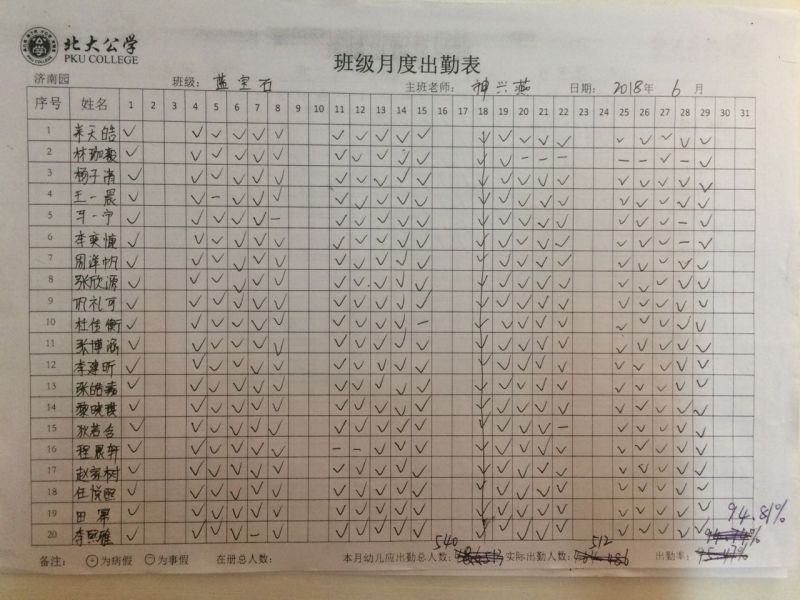 北大公学
PKU COLLEGE
班级月度出勤表
济南园 班级： 蓝宝石 主班老师： 神兴燕 日期： 2018年 6 月
序号 姓名 1 2 3 4 5 6 7 8 9 10 11 12 13 14 15 16 17 18 19 20 21 22 23 24 25 26 27 28 29 30 31
1 天皓 ✓ ✓ ✓ ✓ ✓ ✓ ✓ ✓ ✓ ✓ ✓ ✓ ✓ ✓ ✓ ✓ ✓ ✓ ✓ ✓ ✓
2 林珈毅 ✓ ✓ ✓ ✓ ✓ ✓ ✓ ✓ ✓ ✓ ✓ ✓ ✓ – – – – – ✓ – ✓
3 杨子 ✓ ✓ ✓ ✓ ✓ ✓ ✓ ✓ ✓ ✓ ✓ ✓ ✓ ✓ ✓ ✓ ✓ ✓ ✓ ✓ ✓
4 王一晨 ✓ ✓ – ✓ ✓ ✓ ✓ ✓ ✓ ✓ ✓ ✓ ✓ ✓ ✓ ✓ ✓ ✓ ✓ ✓ ✓
5 一宁 ✓ ✓ ✓ ✓ ✓ – ✓ ✓ ✓ ✓ ✓ ✓ ✓ ✓ ✓ ✓ ✓ ✓ ✓ – ✓
6 李奕慷 ✓ ✓ ✓ ✓ ✓ ✓ ✓ ✓ ✓ ✓ ✓ ✓ ✓ ✓ ✓ ✓ ✓ ✓ ✓ – ✓
7 周泽帆 ✓ ✓ ✓ ✓ ✓ ✓ ✓ ✓ ✓ ✓ ✓ ✓ ✓ ✓ ✓ ✓ ✓ ✓ ✓ ✓ ✓
8 张欣源 ✓ ✓ ✓ ✓ ✓ ✓ ✓ ✓ ✓ ✓ ✓ ✓ ✓ ✓ ✓ ✓ ✓ ✓ ✓ ✓ ✓
9 巩礼可 ✓ ✓ ✓ ✓ ✓ ✓ ✓ ✓ ✓ ✓ ✓ ✓ ✓ ✓ ✓ ✓ ✓ ✓ ✓ ✓ ✓
10 杜佳衡 ✓ ✓ ✓ ✓ ✓ ✓ ✓ ✓ ✓ ✓ – ✓ ✓ ✓ ✓ ✓ ✓ ✓ ✓ ✓ ✓
11 张博涵 ✓ ✓ ✓ ✓ ✓ ✓ ✓ ✓ ✓ ✓ ✓ ✓ ✓ ✓ ✓ ✓ ✓ ✓ ✓ ✓ ✓
12 李建昕 ✓ ✓ ✓ ✓ ✓ ✓ ✓ ✓ ✓ ✓ ✓ ✓ ✓ ✓ ✓ ✓ ✓ ✓ ✓ ✓ ✓
13 张皓嘉 ✓ ✓ ✓ ✓ ✓ ✓ ✓ ✓ ✓ ✓ ✓ ✓ ✓ ✓ ✓ ✓ ✓ ✓ ✓ ✓ ✓
14 黎晓琪 ✓ ✓ ✓ ✓ ✓ ✓ ✓ ✓ ✓ ✓ ✓ ✓ ✓ ✓ ✓ ✓ ✓ ✓ ✓ ✓ ✓
15 狄若 ✓ ✓ ✓ ✓ ✓ ✓ ✓ ✓ ✓ ✓ ✓ ✓ ✓ ✓ ✓ – ✓ ✓ ✓ ✓ ✓
16 程晨轩 ✓ ✓ ✓ ✓ ✓ ✓ – – ✓ ✓ ✓ ✓ ✓ ✓ ✓ ✓ ✓ ✓ ✓ ✓ ✓
17 赵家树 ✓ ✓ ✓ ✓ ✓ ✓ ✓ ✓ ✓ ✓ ✓ ✓ ✓ ✓ ✓ ✓ ✓ ✓ ✓ ✓ ✓
18 任悦熙 ✓ ✓ ✓ ✓ ✓ ✓ ✓ ✓ ✓ ✓ ✓ ✓ ✓ ✓ ✓ ✓ ✓ ✓ ✓ ✓ ✓
19 田果 ✓ ✓ ✓ ✓ ✓ ✓ ✓ ✓ ✓ ✓ ✓ ✓ ✓ ✓ ✓ ✓ ✓ ✓ ✓ ✓ ✓
20 李熙雅 ✓ ✓ ✓ ✓ – ✓ ✓ ✓ ✓ ✓ ✓ ✓ ✓ ✓ ✓ ✓ ✓ ✓ ✓ ✓ ✓
94.81%
备注： ⊕为病假 ⊖为事假 在册总人数： 本月幼儿应出勤总人数： 540 实际出勤人数： 512 出勤率：